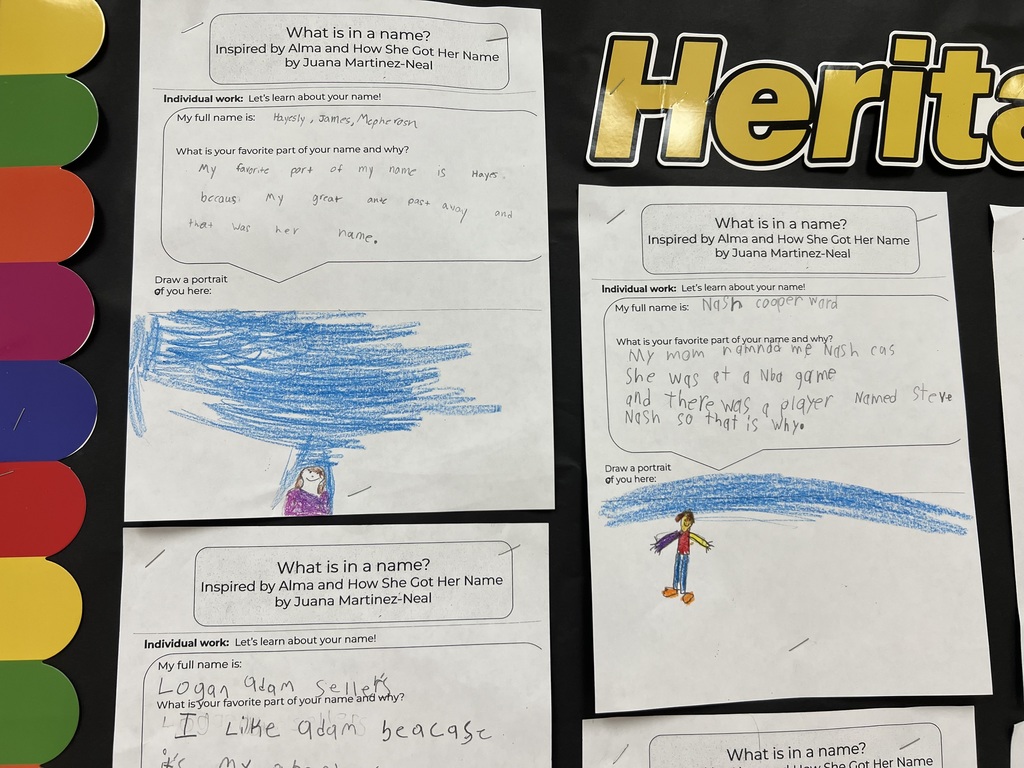 What is in a name?
Inspired by Alma and How She Got Her Name
by Juana Martinez-Neal
Individual work: Let's learn about your name!
My full name is: Hayesly, James, Mcpherosn
What is your favorite part of your name and why?
My favorite part of my name is Hayes.
becaus My great ante past away and
that was her name.
Draw a portrait
of you here:
Herita
What is in a name?
Inspired by Alma and How She Got Her Name
by Juana Martinez-Neal
Individual work: Let's learn about your name!
My full name is: Nash cooper ward
What is your favorite part of your name and why?
My mom namnda me Nash cas
She was at a Nba game
and there was a player Named Steve
Nash so that is why.
Draw a portrait
of you here:
What is in a name?
Inspired by Alma and How She Got Her Name
by Juana Martinez-Neal
Individual work: Let's learn about your name!
My full name is:
Logan adam Sellers
What is your favorite part of your name and why?
I Like adam beacase
it's my
What is in a name?
Inspired by Alma and How She Got Her Name